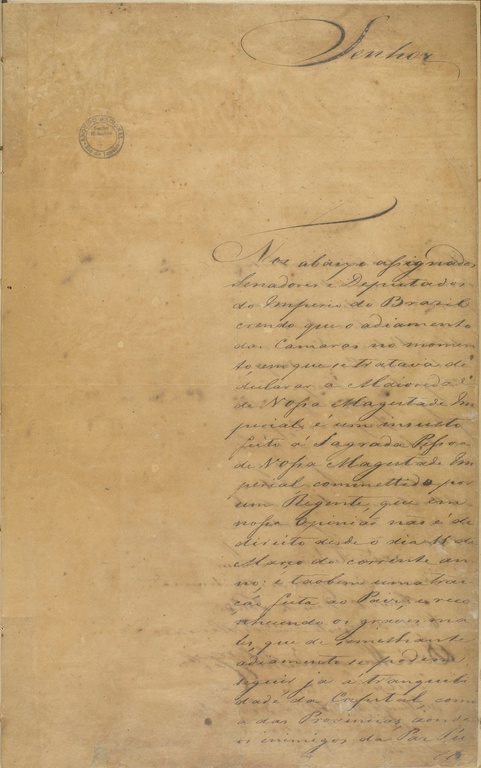 Senhor
Nos abaixo assignados,
Senadores e Deputados
do Imperio do Brazil
crendo que o adiamento
das Camaras no momen
to, em que se tratava de
declarar a Maiorida
de Vossa Magestade Im
perial, é um insulto
feito á Sagrada Pessoa
de Vossa Magestade Im
perial, commettido por
um Regente, que em
nossa opinião não é de
direito desde o dia 11 de
Março do corrente an
no: e tãobem uma trai
ção feita ao Paiz, e reco
nhecendo os graves ma
les, que de semelhante
adiamento se podem
seguir já á tranquili
dade da Capital, como
a das Provincias, aonde
os inimigos da Paz Pu